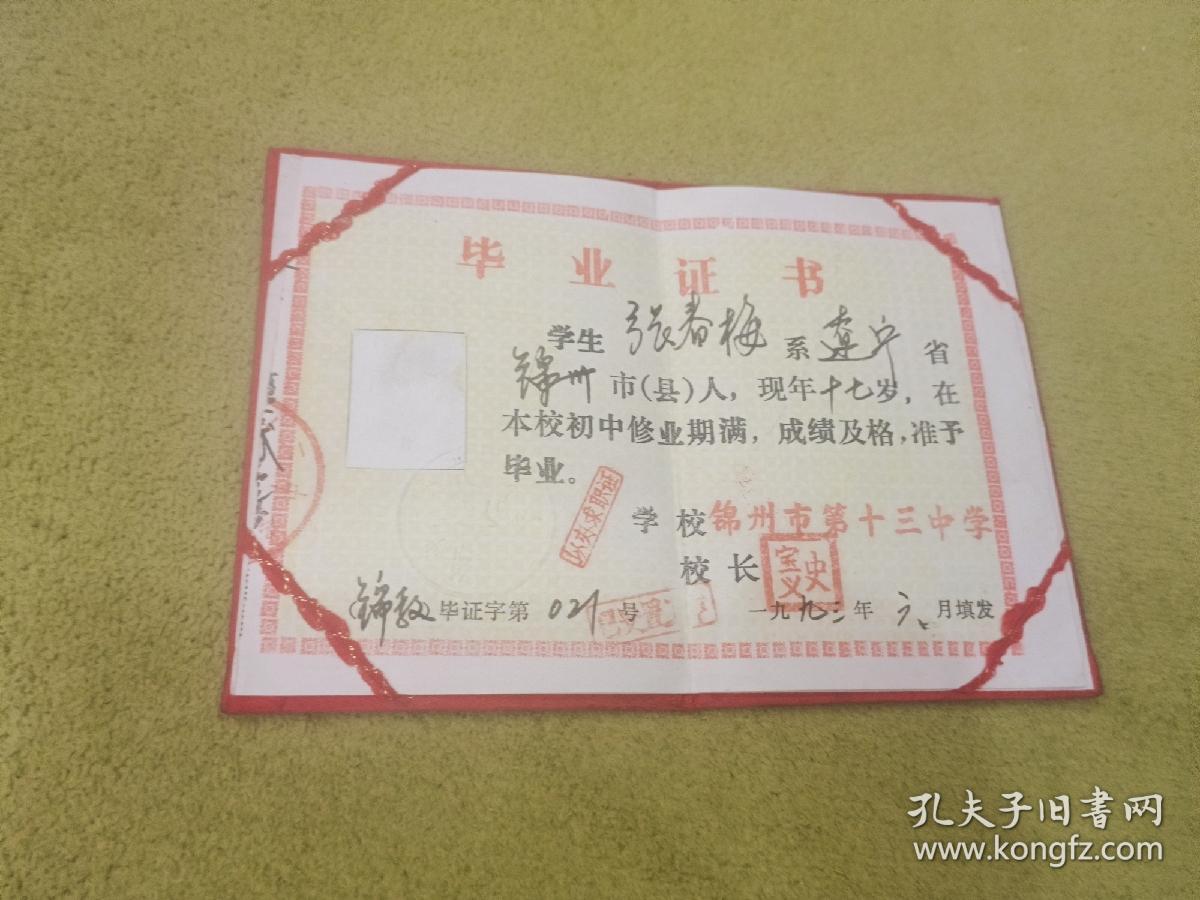 毕业证书
学生 张春梅 系 辽宁 省
锦州 市(县)人，现年十七岁，在
本校初中修业期满，成绩及格，准予
毕业。
已办求职证
学校 锦州市第十三中学
校长 史宝义
锦教 毕证字第 021 号
一九九二年 六 月填发
孔夫子旧书网
www.kongfz.com